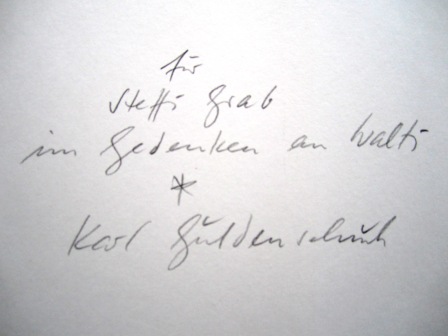 für
Steffi Grab
im Gedenken an Walti
*
Karl Güldenschuh